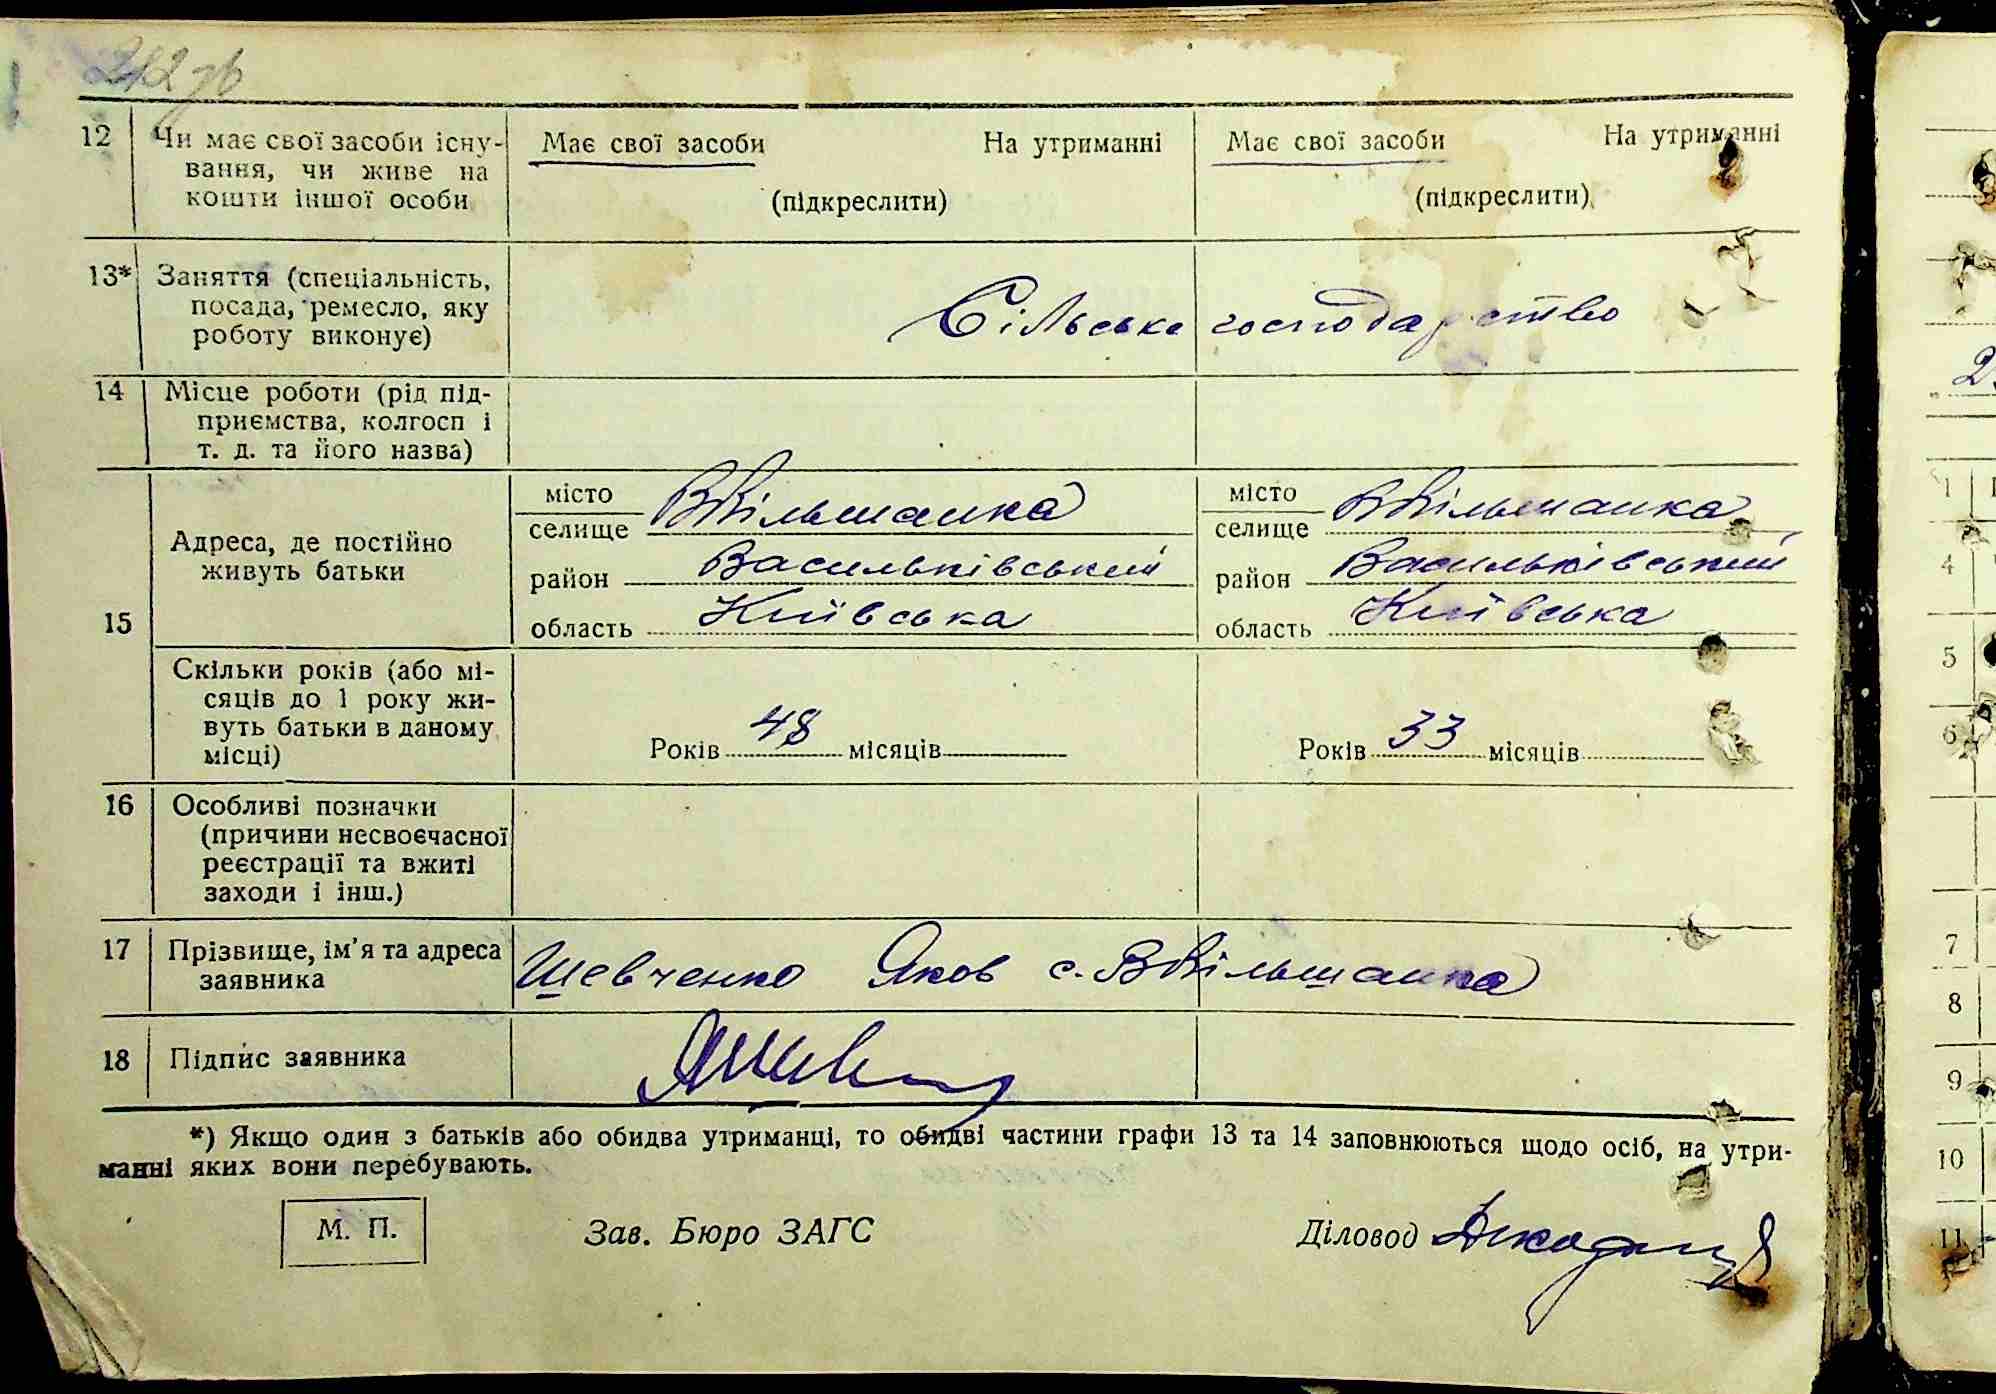 242 зв
12 Чи має свої засоби існу-
вання, чи живе на
кошти іншої особи
Має свої засоби На утриманні
(підкреслити)
Має свої засоби На утриманні
(підкреслити)
13* Заняття (спеціальність,
посада, ремесло, яку
роботу виконує)
Сільське господарство
14 Місце роботи (рід під-
приємства, колгосп і
т. д. та його назва)
15
Адреса, де постійно
живуть батьки
місто
селище ВВільшанка
район Васильківський
область Київська
місто
селище ВВільшанка
район Васильківський
область Київська
Скільки років (або мі-
сяців до 1 року жи-
вуть батьки в даному
місці)
Років 48 місяців
Років 33 місяців
16 Особливі позначки
(причини несвоєчасної
реєстрації та вжиті
заходи і інш.)
17 Прізвище, ім'я та адреса
заявника
Шевченко Яков с. ВВільшанка
18 Підпис заявника
*) Якщо один з батьків або обидва утриманці, то обидві частини графи 13 та 14 заповнюються щодо осіб, на утри-
манні яких вони перебувають.
М. П. Зав. Бюро ЗАГС Діловод
1
4
5
6
7
8
9
10
11